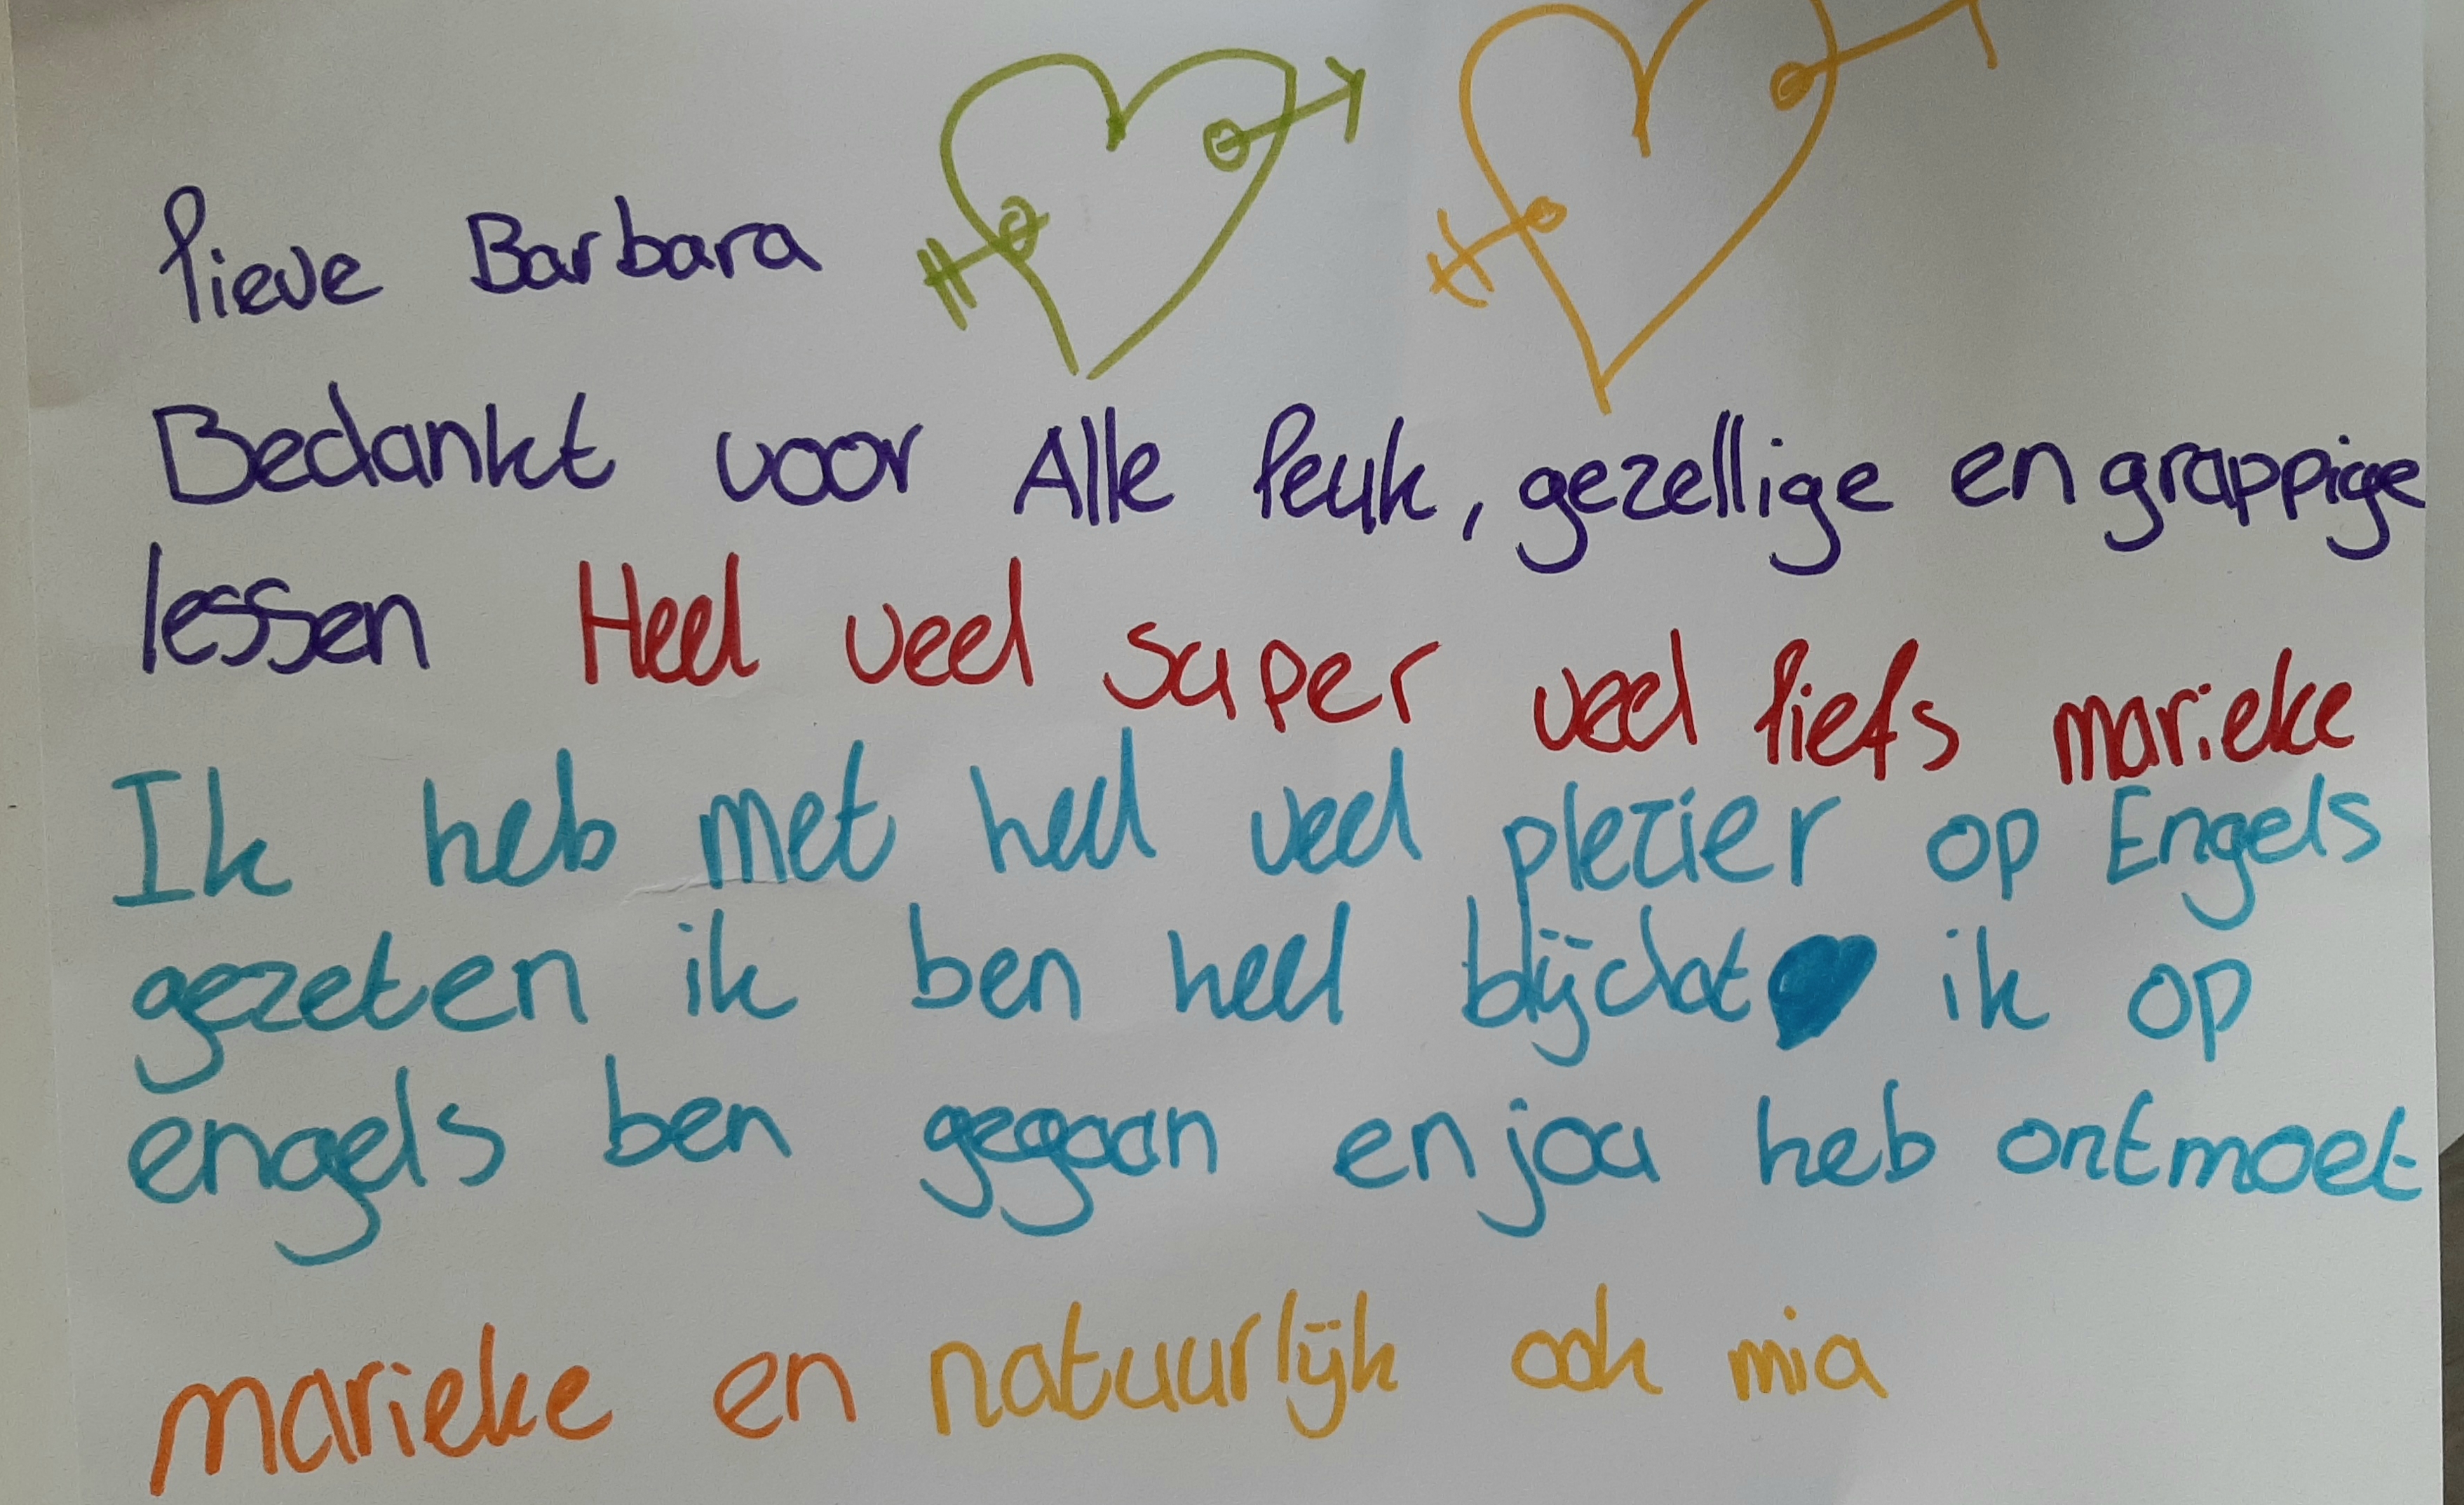 lieve Barbara
Bedankt voor Alle leuk, gezellige en grappige
lessen Heel veel super veel liefs marieke
Ik heb met heel veel plezier op Engels
gezeten ik ben heel blij dat ik op
engels ben gegaan en jou heb ontmoet
marieke en natuurlijk ook mia